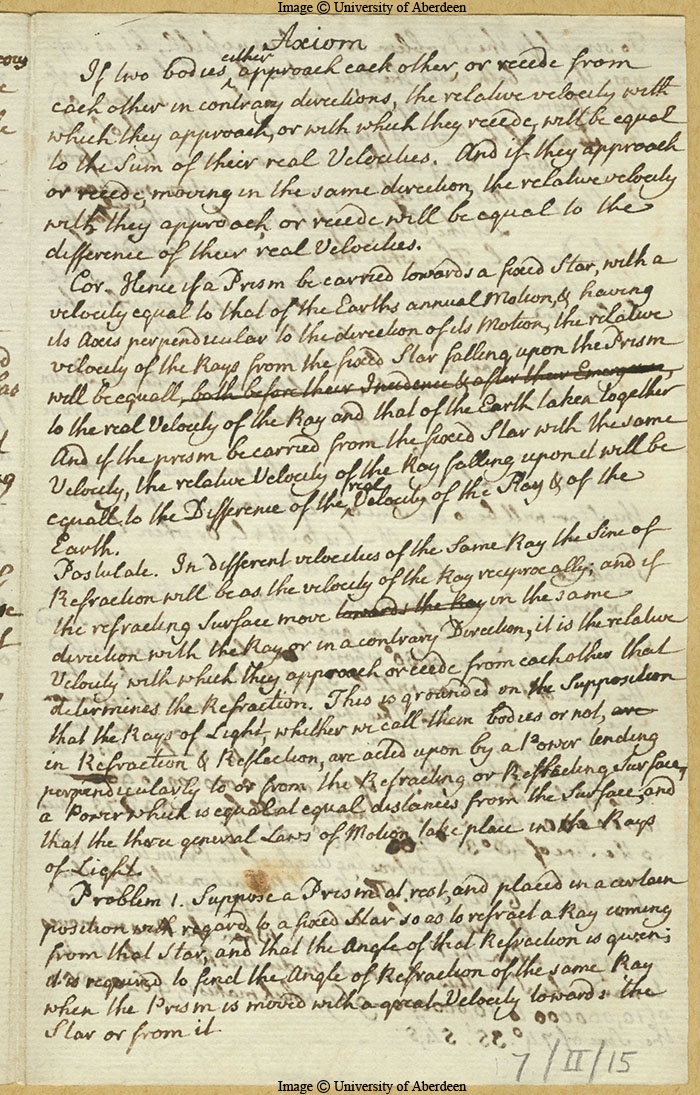 Image © University of Aberdeen
Axiom
If two bodies either approach each other, or recede from
each other in contrary directions, the relative velocity with
which they approach, or with which they recede, will be equal
to the Sum of their real Velocities. And if they approach
or recede, moving in the same direction, the relative velocity
with they approach or recede will be equal to the
difference of their real Velocities.
Cor. Hence if a Prism be carried towards a fixed Star, with a
velocity equal to that of the Earths annual Motion, & having
its Axis perpendicular to the direction of its Motion, the relative
velocity of the Rays from the fixed Star falling upon the Prism
will be equall, both before their Incidence & after their Emergence,
to the real Velocity of the Ray and that of the Earth taken together
And if the prism be carried from the fixed Star with the same
Velocity, the relative Velocity of the Ray falling upon it will be
equall to the Difference of the real Velocity of the Ray & of the
Earth.
Postulate. In different velocities of the Same Ray the Sine of
Refraction will be as the velocity of the Ray reciprocally; and if
the refracting Surface move towards the Ray in the same
direction with the Ray or in a contrary Direction, it is the relative
Velocity with which they approach or recede from each other that
determines the Refraction. This is grounded on the Supposition
that the Rays of Light, whether we call them bodies or not, are
in Refraction & Reflection, are acted upon by a Power tending
perpendicularly to or from the Refracting or Reflecting Surface,
a Power which is equal at equal distances from the Surface, and
that the three general Laws of Motion take place in the Rays
of Light.
Problem 1. Suppose a Prism at rest, and placed in a certain
position with regard to a fixed Star so as to refract a Ray coming
from that Star, and that the Angle of that Refraction is given;
it is required to find the Angle of Refraction of the same Ray
when the Prism is moved with a great Velocity towards the
Star or from it
7/II/15
Image © University of Aberdeen